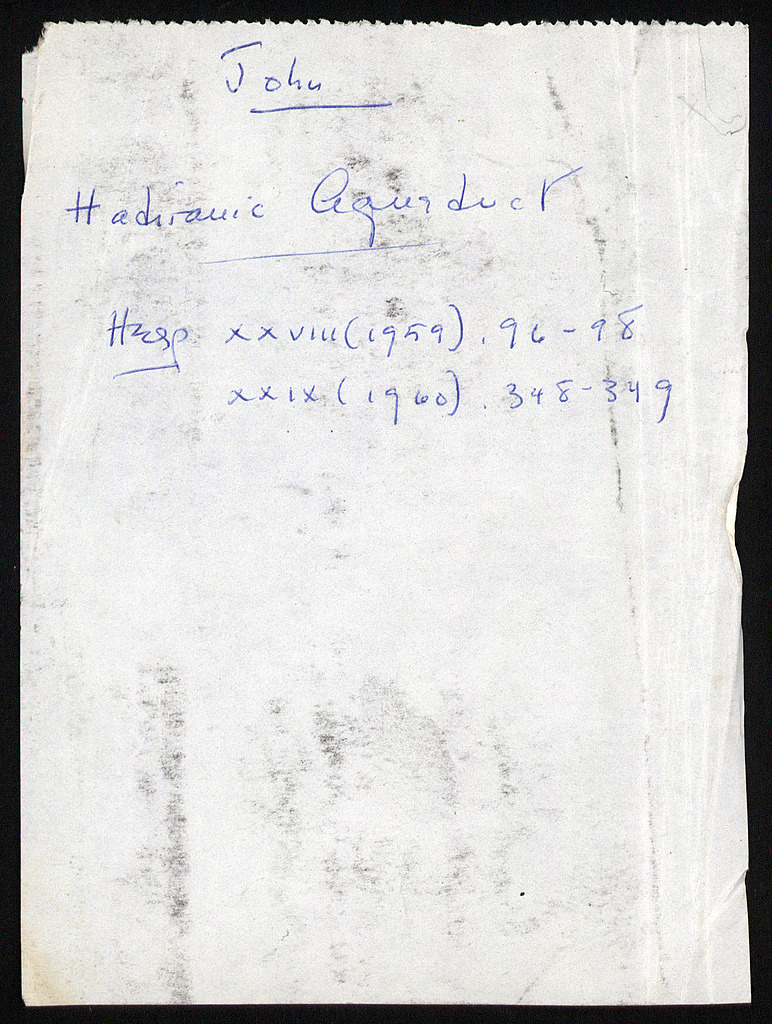 John
Hadrianic Aqueduct
Hesp XXVIII (1959). 96-98
XXIX (1960). 348-349